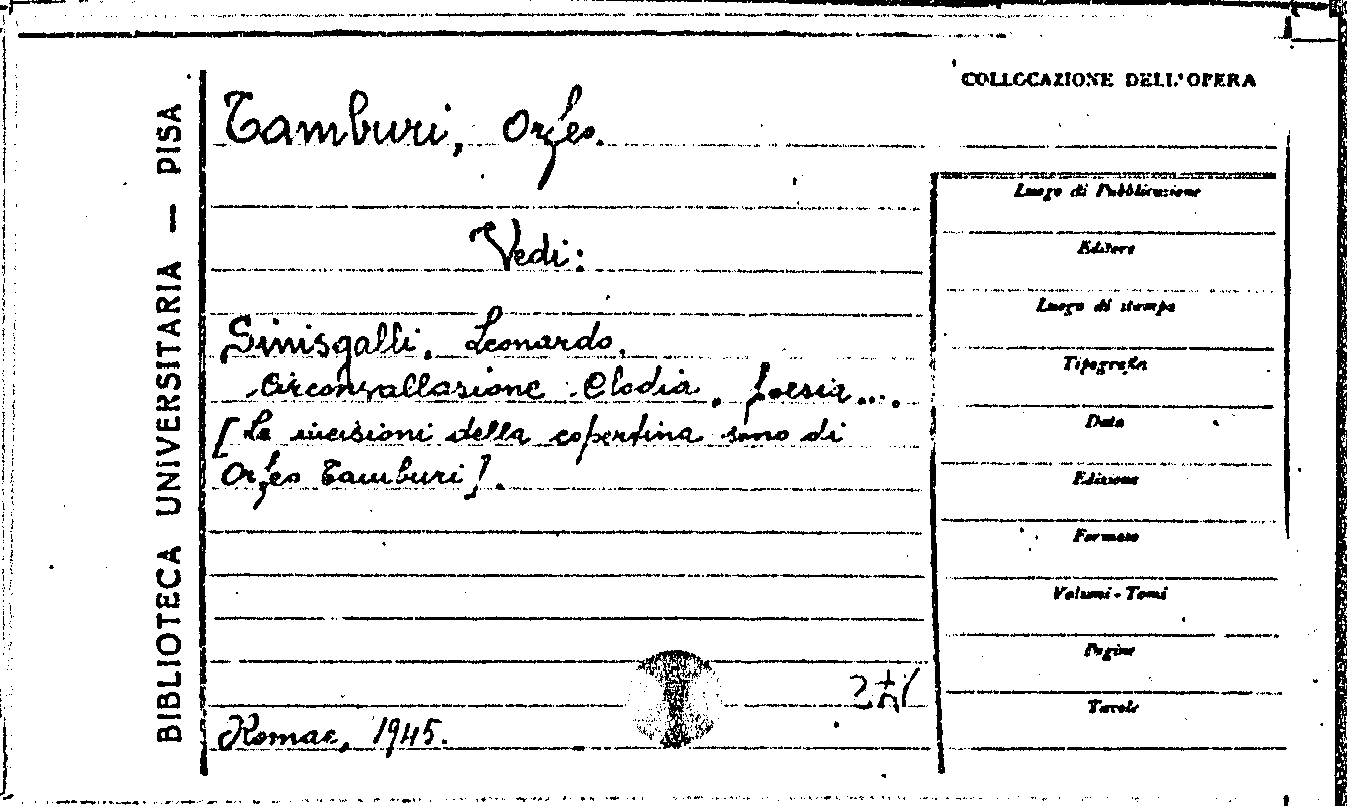 BIBLIOTECA UNIVERSITARIA — PISA
COLLOCAZIONE DELL'OPERA
Tamburi, Orfeo.
Vedi:
Sinisgalli, Leonardo.
Circonvallazione Clodia. Poesia....
[Le incisioni della copertina sono di
Orfeo Tamburi].
Romae, 1945.
Luogo di Pubblicazione
Editore
Luogo di stampa
Tipografia
Data
Edizione
Formato
Volumi - Tomi
Pagine
Tavole